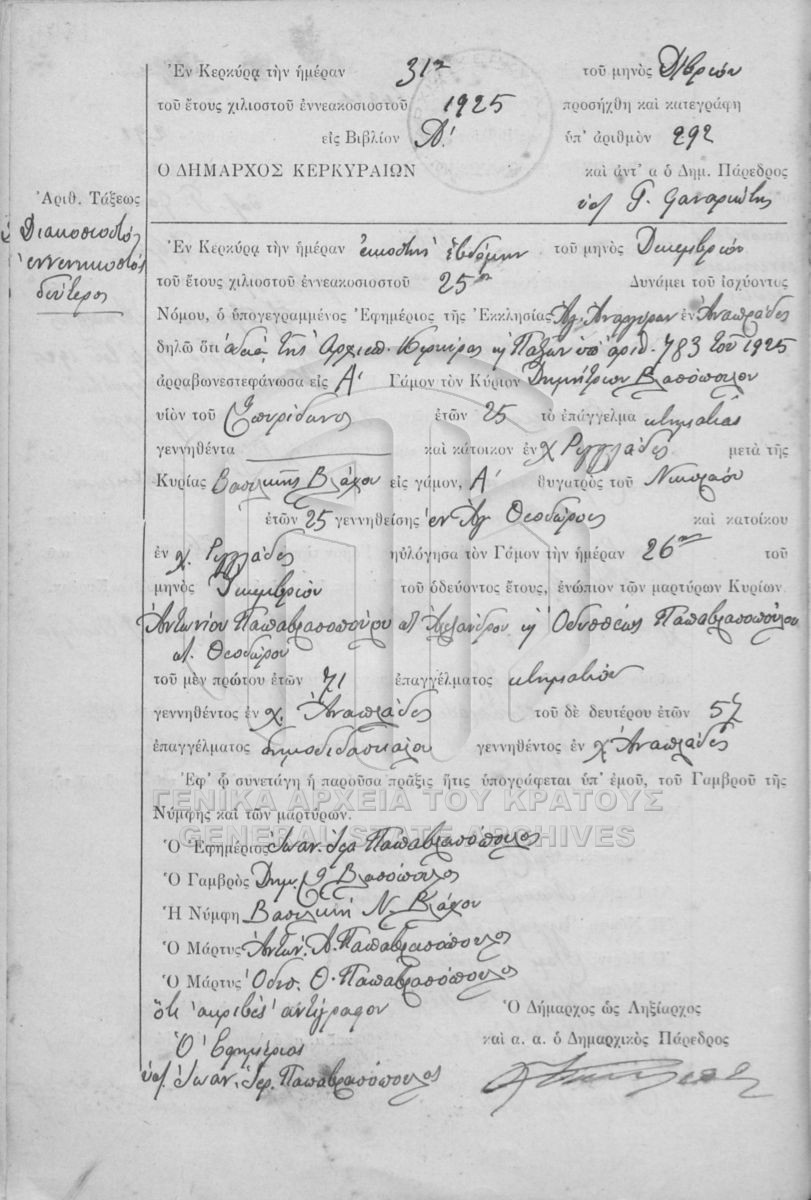 Ἐν Κερκύρᾳ τὴν ἡμέραν 31ην τοῦ μηνὸς Δ/βρίου
τοῦ ἔτους χιλιοστοῦ ἐννεακοσιοστοῦ 1925 προσήχθη καὶ κατεγράφη
εἰς Βιβλίον Α' ὑπ' ἀριθμὸν 292
Ο ΔΗΜΑΡΧΟΣ ΚΕΡΚΥΡΑΙΩΝ καὶ ἀντ' α ὁ Δημ. Πάρεδρος
Γ.
Ἀριθ. Τάξεως
Διακοσιοστὸς
ἐννενηκοστὸς
δεύτερος
Ἐν Κερκύρᾳ τὴν ἡμέραν εἰκοστὴν ἑβδόμην τοῦ μηνὸς Δεκεμβρίου
τοῦ ἔτους χιλιοστοῦ ἐννεακοσιοστοῦ 25ου Δυνάμει τοῦ ἰσχύοντος
Νόμου, ὁ ὑπογεγραμμένος Ἐφημέριος τῆς Ἐκκλησίας Ἁγ. Αναργύρων ἐν Ἀναπλάδες
δηλῶ ὅτι ἀδείᾳ τῆς Αρχιεπ. Κερκύρας κ Παξῶν ὑπ' ἀριθ. 783 τοῦ 1925
ἀρραβωνεστεφάνωσα εἰς Α' Γάμον τὸν Κύριον Δημήτριον Βλασόπουλον
υἱὸν τοῦ Σπυρίδωνος ἐτῶν 25 τὸ ἐπάγγελμα κτηματίας
γεννηθέντα καὶ κάτοικον ἐν χ. Ρηγγλάδες μετὰ τῆς
Κυρίας Βασιλικῆς Βλάχου εἰς γάμον, Α' θυγατρὸς τοῦ Νικολάου
ἐτῶν 25 γεννηθείσης ἐν Ἁγ Θεοδώρους καὶ κατοίκου
ἐν χ. Ρηγγλάδες ηὐλόγησα τὸν Γάμον τὴν ἡμέραν 26ην τοῦ
μηνὸς Δεκεμβρίου τοῦ ὁδεύοντος ἔτους, ἐνώπιον τῶν μαρτύρων Κυρίων
Ἀντωνίου Παπαβλασοπούλου Ἀλεξάνδρου κ Ὀδυσσέως Παπαβλασοπούλου
Θεοδώρου
τοῦ μὲν πρώτου ἐτῶν 71 ἐπαγγέλματος κτηματίου
γεννηθέντος ἐν χ. Ἀναπλάδες τοῦ δὲ δευτέρου ἐτῶν 57
ἐπαγγέλματος δημοδιδασκάλου γεννηθέντος ἐν χ Ἀναπλάδες
Ἐφ' ᾧ συνετάγη ἡ παροῦσα πρᾶξις ἥτις ὑπογράφεται ὑπ' ἐμοῦ, τοῦ Γαμβροῦ τῆς
ΓΕΝΙΚΑ ΑΡΧΕΙΑ ΤΟΥ ΚΡΑΤΟΥΣ
Νύμφης καὶ τῶν μαρτύρων.
GENERAL STATE ARCHIVES
Ὁ Ἐφημέριος Ἰωαν. Ἱερ. Παπαβλασόπουλος
Ὁ Γαμβρὸς Δημ. Βλασόπουλος
Ἡ Νύμφη Βασιλικὴ Ν. Βλάχου
Ὁ Μάρτυς Ἀντών. Α. Παπαβλασόπουλος
Ὁ Μάρτυς Ὀδυσ. Θ. Παπαβλασόπουλος
ὅτι ἀκριβὲς ἀντίγραφον Ὁ Δήμαρχος ὡς Ληξίαρχος
Ὁ Ἐφημέριος καὶ α. α. ὁ Δημαρχικὸς Πάρεδρος
Ἰωαν. Ἱερ. Παπαβλασόπουλος